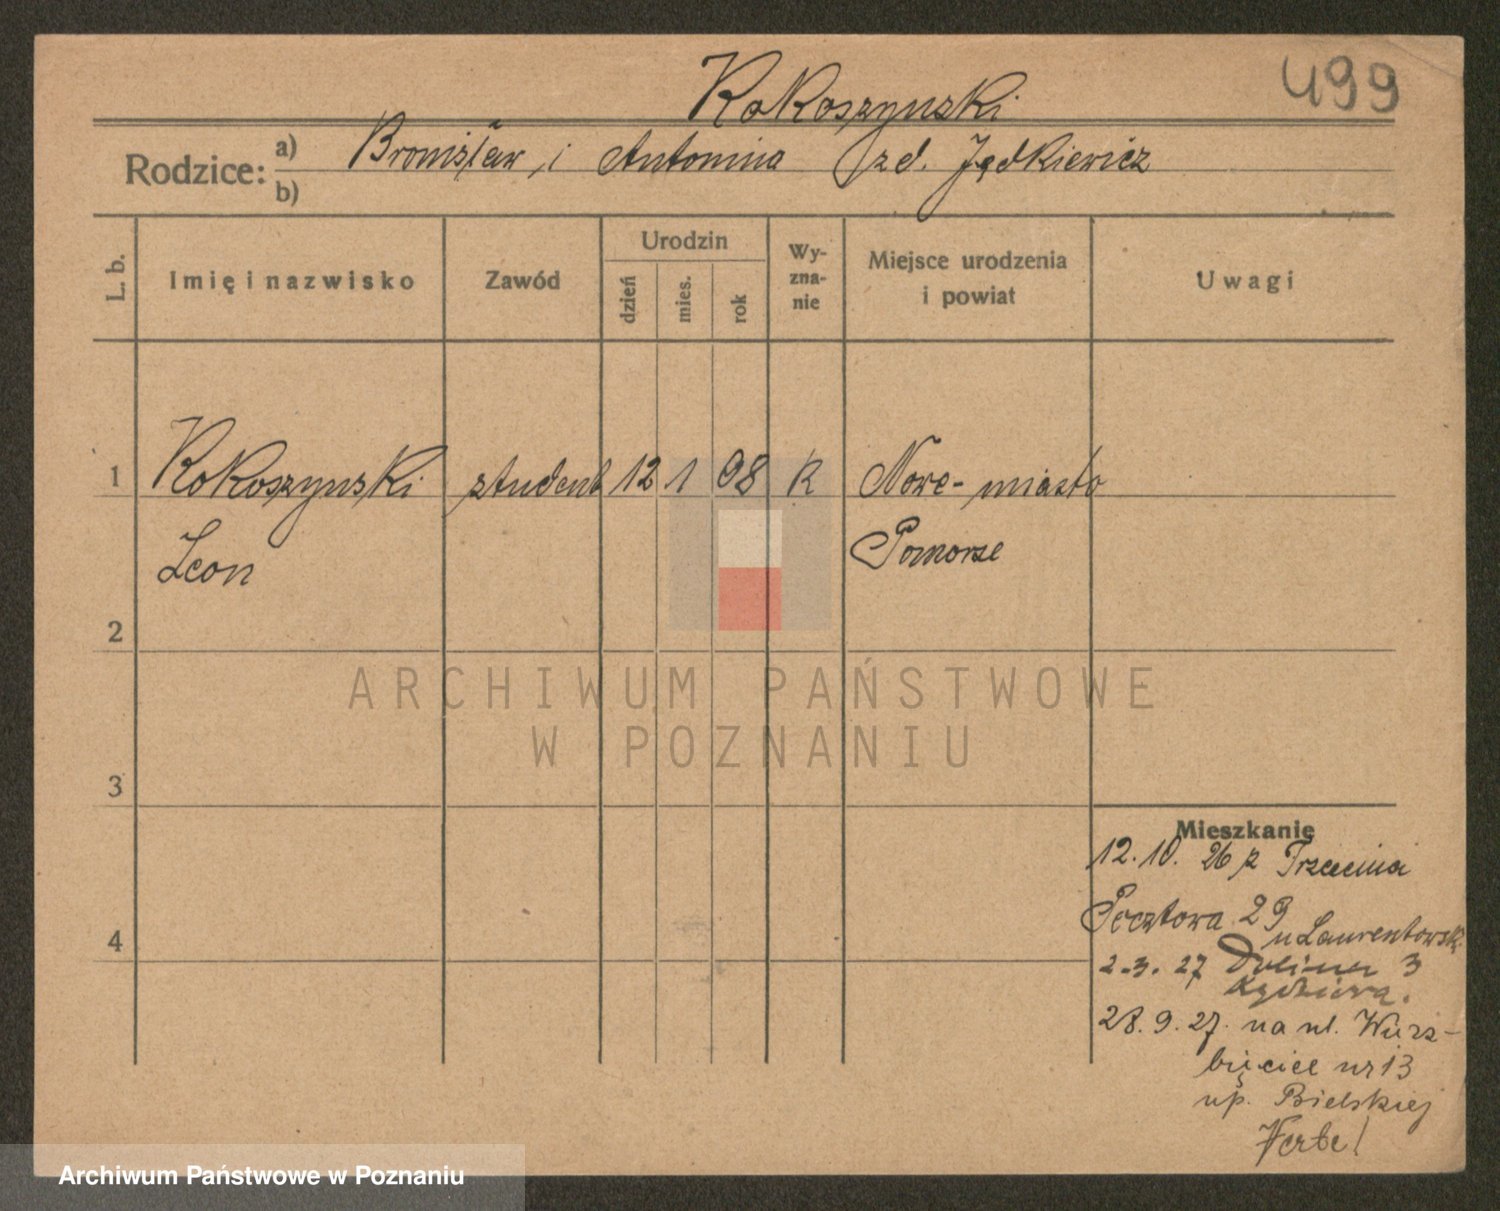 499
Kokoszynski
Rodzice: a) Bronisław, i Antonina (zd. Jądkiewicz
b)
L. b. Imię i nazwisko Zawód Urodzin dzień mies. rok Wyznanie Miejsce urodzenia i powiat Uwagi
1 Kokoszynski student 12 1 98 K Nowe-miasto
Leon Pomorze
2
ARCHIWUM PAŃSTWOWE
W POZNANIU
3
Mieszkanie
12.10. 26 z
Pocztowa 29
u Laurentowsk.
4
2.3. 27 Dolina 3
28.9.27. na ul. Wierz-
bięcice nr 13
up. Bielskiej
Archiwum Państwowe w Poznaniu